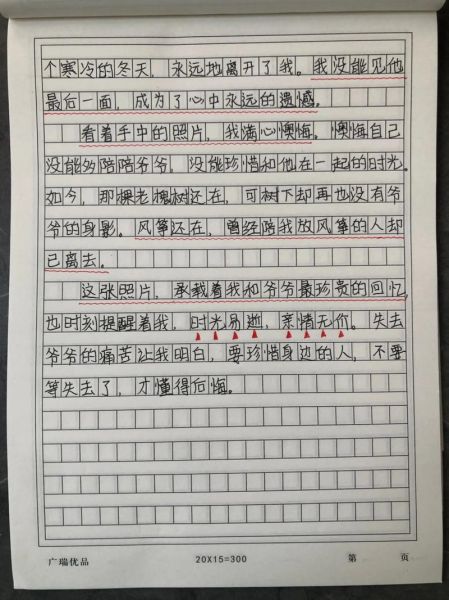 个寒冷的冬天，永远地离开了我。我没能见他
最后一面，成为了心中永远的遗憾。
看着手中的照片，我满心懊悔。懊悔自己
没能多陪陪爷爷，没能珍惜和他在一起的时光。
如今，那棵老槐树还在，可树下却再也没有爷
爷的身影。风筝还在，曾经陪我放风筝的人却
已离去。
这张照片，承载着我和爷爷最珍贵的回忆，
也时刻提醒着我，时光易逝，亲情无价。失去
爷爷的痛苦让我明白，要珍惜身边的人，不要
等失去了，才懂得后悔。
广瑞优品 20X15=300 第 页